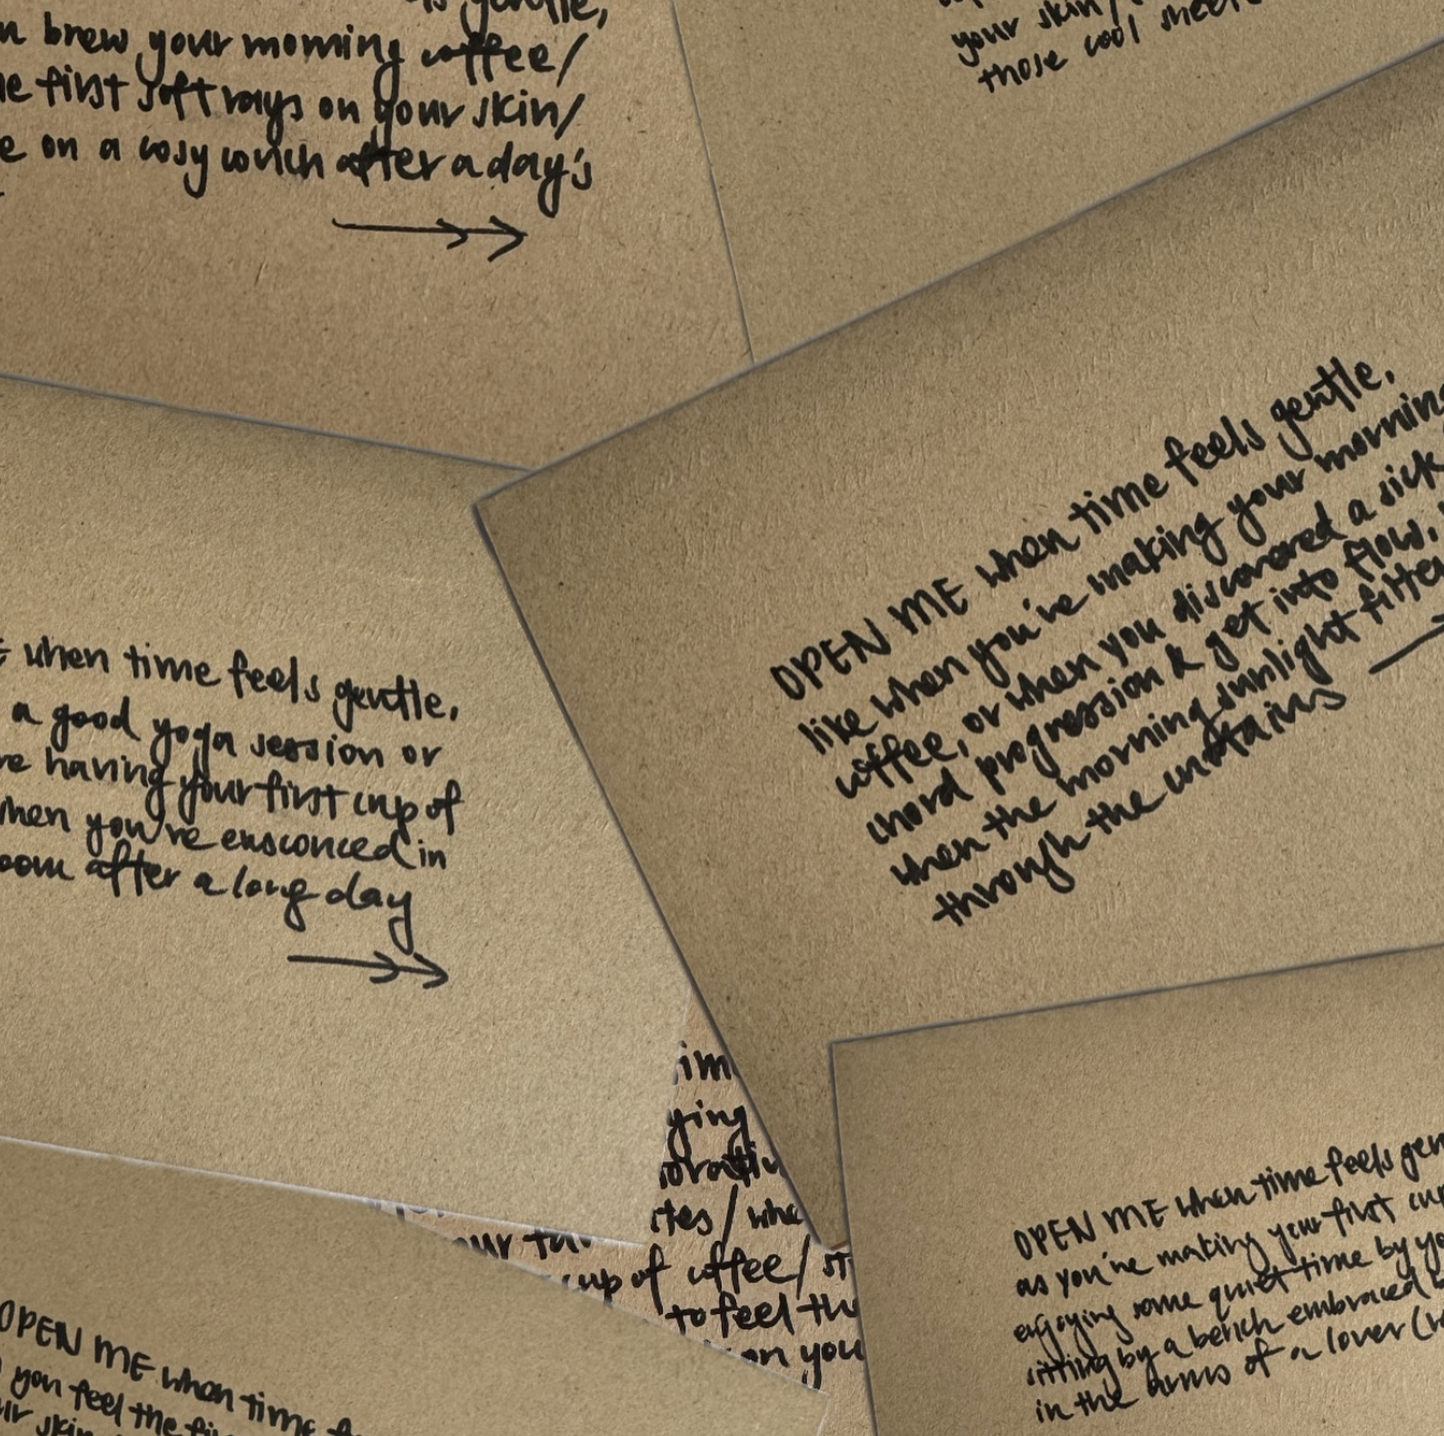 is gentle,
brew your morning coffee/
first soft rays on your skin/
on a cosy couch after a day's
your skin/
those cool sheets
OPEN ME when time feels gentle,
like when you're making your morning
coffee, or when you discovered a sick
chord progression & get into flow,
when the morning sunlight filter
through the curtains
when time feels gentle,
a good yoga session or
having your first cup of
when you're ensconced in
after a long day
cup of coffee/
to feel
on you
OPEN ME when time feels
as you're making your first
enjoying some quiet time by
sitting by a bench embraced
in the arms of a lover
OPEN ME when time
you feel the
skin